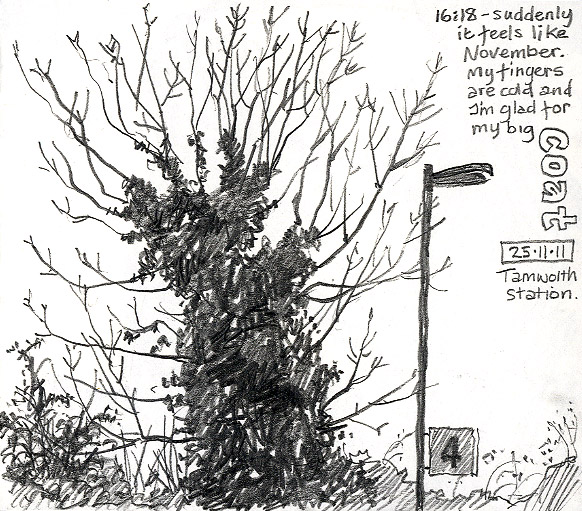 16:18 - suddenly
it feels like
November.
My fingers
are cold and
I'm glad for
my big
Coat
25·11·11
Tamworth
Station.
4